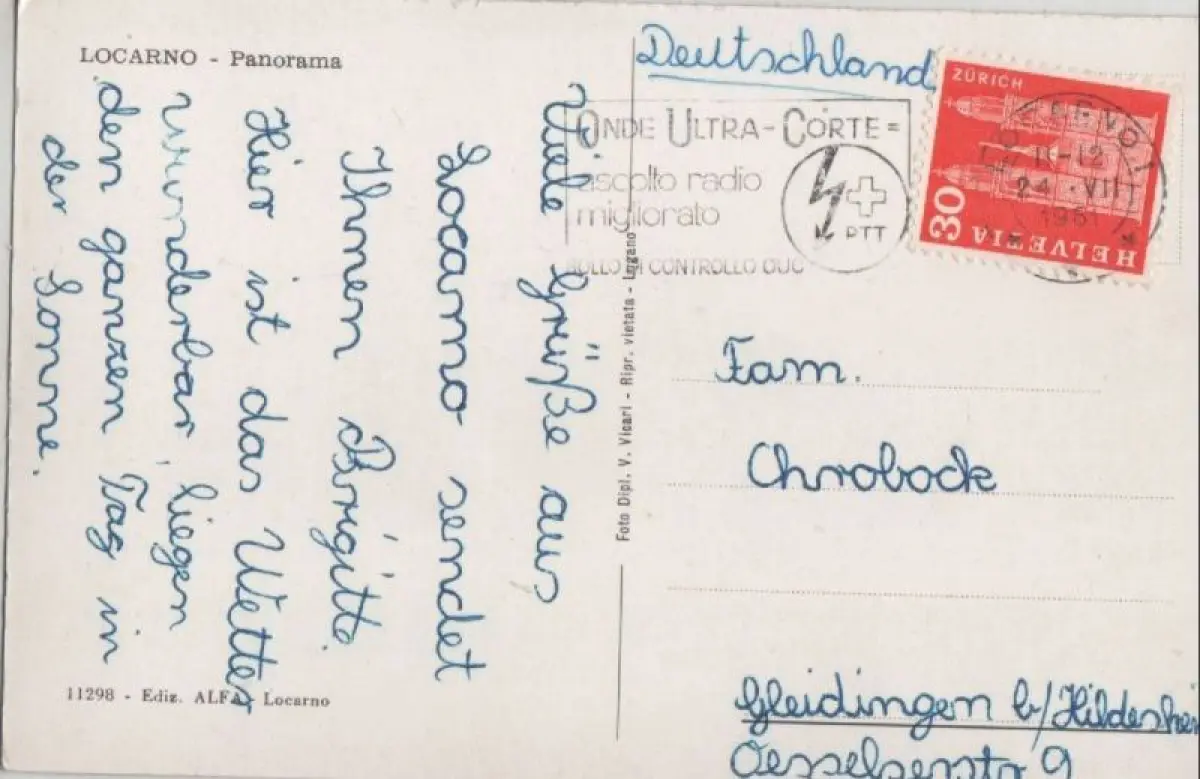 LOCARNO - Panorama
Viele Grüße aus
Locarno sendet
Ihnen Brigitte.
Hier ist das Wetter
wunderbar, liegen
den ganzen Tag in
der Sonne.
11298 - Ediz. ALFA - Locarno
Foto Dipl. V. Vicari - Ripr. vietata - Lugano
Deutschland
ONDE ULTRA-CORTE=
ascolto radio
migliorato
CONTROLLO
PTT
ZÜRICH
30
HELVETIA
11-12
24.VIII
1961
Fam.
Chrobock
Gleidingen b/Hildeshei
Oesselserstr 9